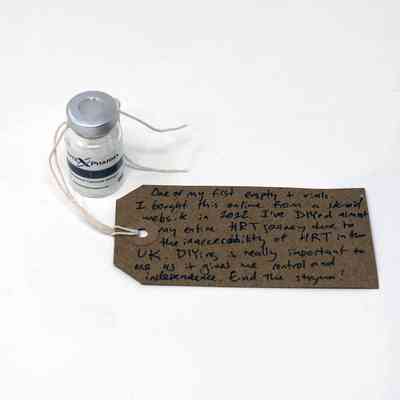 X PHARMA
One of my first empty t vials.
I bought this online from a steroid
website in 2022. I've DIYed almost
my entire HRT journey due to
the inaccessibility of HRT in the
UK. DIYing is really important to
me as it gives me control and
independence. End the stigma!